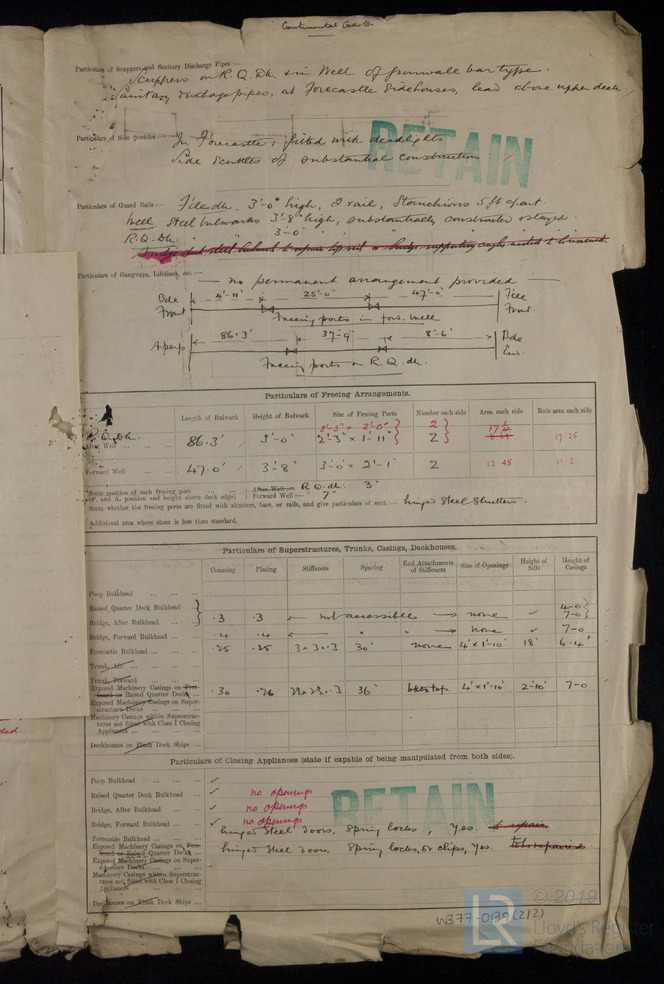 Continental Coaster
Particulars of Scuppers and Sanitary Discharge Pipes :—
Scuppers on R.Q. Dk. & in Well of gunwale bar type.
Sanitary discharge pipes, at Forecastle Sidehouses, lead above upper deck.
Particulars of Side Scuttles :—
In Forecastle & fitted with deadlights
Side Scuttles of substantial construction
RETAIN
Particulars of Guard Rails :—
F'cle dk. 3'-0" high, 2 rail, Stanchions 5 ft apart.
Well Steel bulwarks 3'-8" high, substantially constructed & stayed.
R.Q. Dk. " " 3'-0" "
Particulars of Gangways, Lifelines, etc. :—
— no permanent arrangement provided —
Bde Front 4'-11" 25'-0" 47'-0" F'cle Front
Freeing ports in forwd. well
A perp 86.3' 37'-9" 8'-6" Bde End.
Freeing ports on R.Q. dk.
Particulars of Freeing Arrangements.
Length of Bulwark Height of Bulwark Size of Freeing Ports Number each side Area each side Rule area each side
2'-5" × 2'-0" 2
R.Q. Dk. 86.3' 3'-0" 2'-3" × 1'-11" 2 17.25
After Well
Forward Well 47.0' 3'-8" 3'-0" × 2'-1" 2 12.48 11.2
State position of each freeing port
(F. and A. position and height above deck edge)
After Well :— R.Q. dk. 3"
Forward Well :— 7"
State whether the freeing ports are fitted with shutters, bars, or rails, and give particulars of such :— hinged Steel Shutters.
Additional area where sheer is less than standard.
Particulars of Superstructures, Trunks, Casings, Deckhouses.
Coaming Plating Stiffeners Spacing End Attachments of Stiffeners Size of Openings Height of Sills Height of Casings
Poop Bulkhead
Raised Quarter Deck Bulkhead 4-0
Bridge, After Bulkhead .3 .3 ← not accessible → none ✓ 7-0
Bridge, Forward Bulkhead .4 .4 ← " " → none ✓ 7-0
Forecastle Bulkhead .25 .25 3 × 3 × .3 30" none 4' × 1'-10" 18" 6-4"
Trunk, Aft
Trunk, Forward
Exposed Machinery Casings on Freeboard or Raised Quarter Decks .30 .26 2½ × 2½ × .3 36" 4' × 1'-10" 2'-10" 7-0
Exposed Machinery Casings on Superstructure Decks
Machinery Casings within Superstructures not fitted with Class I Closing Appliances
Deckhouses on Flush Deck Ships
Particulars of Closing Appliances (state if capable of being manipulated from both sides).
Poop Bulkhead ✓
Raised Quarter Deck Bulkhead ✓ no openings
Bridge, After Bulkhead ✓ no openings
Bridge, Forward Bulkhead ✓ no openings
Forecastle Bulkhead hinged Steel doors, Spring locks, Yes.
Exposed Machinery Casings on Freeboard or Raised Quarter Decks hinged Steel doors. Spring locks, or clips, Yes.
Exposed Machinery Casings on Superstructure Decks
Machinery Casings within Superstructures not fitted with Class I Closing Appliances
Deckhouses on Flush Deck Ships
RETAIN
W377-0139 (2/2)
LR
© 2019
Lloyd's Register
Foundation